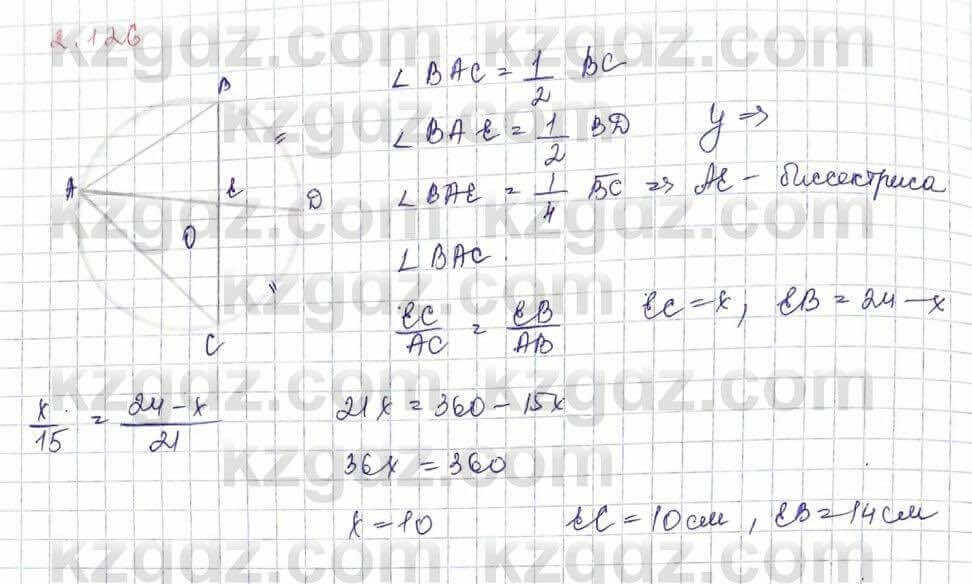 2.126
kzgdz.com
B
A
E
D
O
C
∠ BAC = 1/2 BC
∠ BAE = 1/2 BD У ⇒
∠ BAE = 1/4 BC ⇒ AE - биссектриса
∠ BAC
EC/AC = EB/AB EC = x, EB = 24 - x
x/15 = 24 - x/21 21x = 360 - 15x
36x = 360
x = 10 EC = 10 см, EB = 14 см